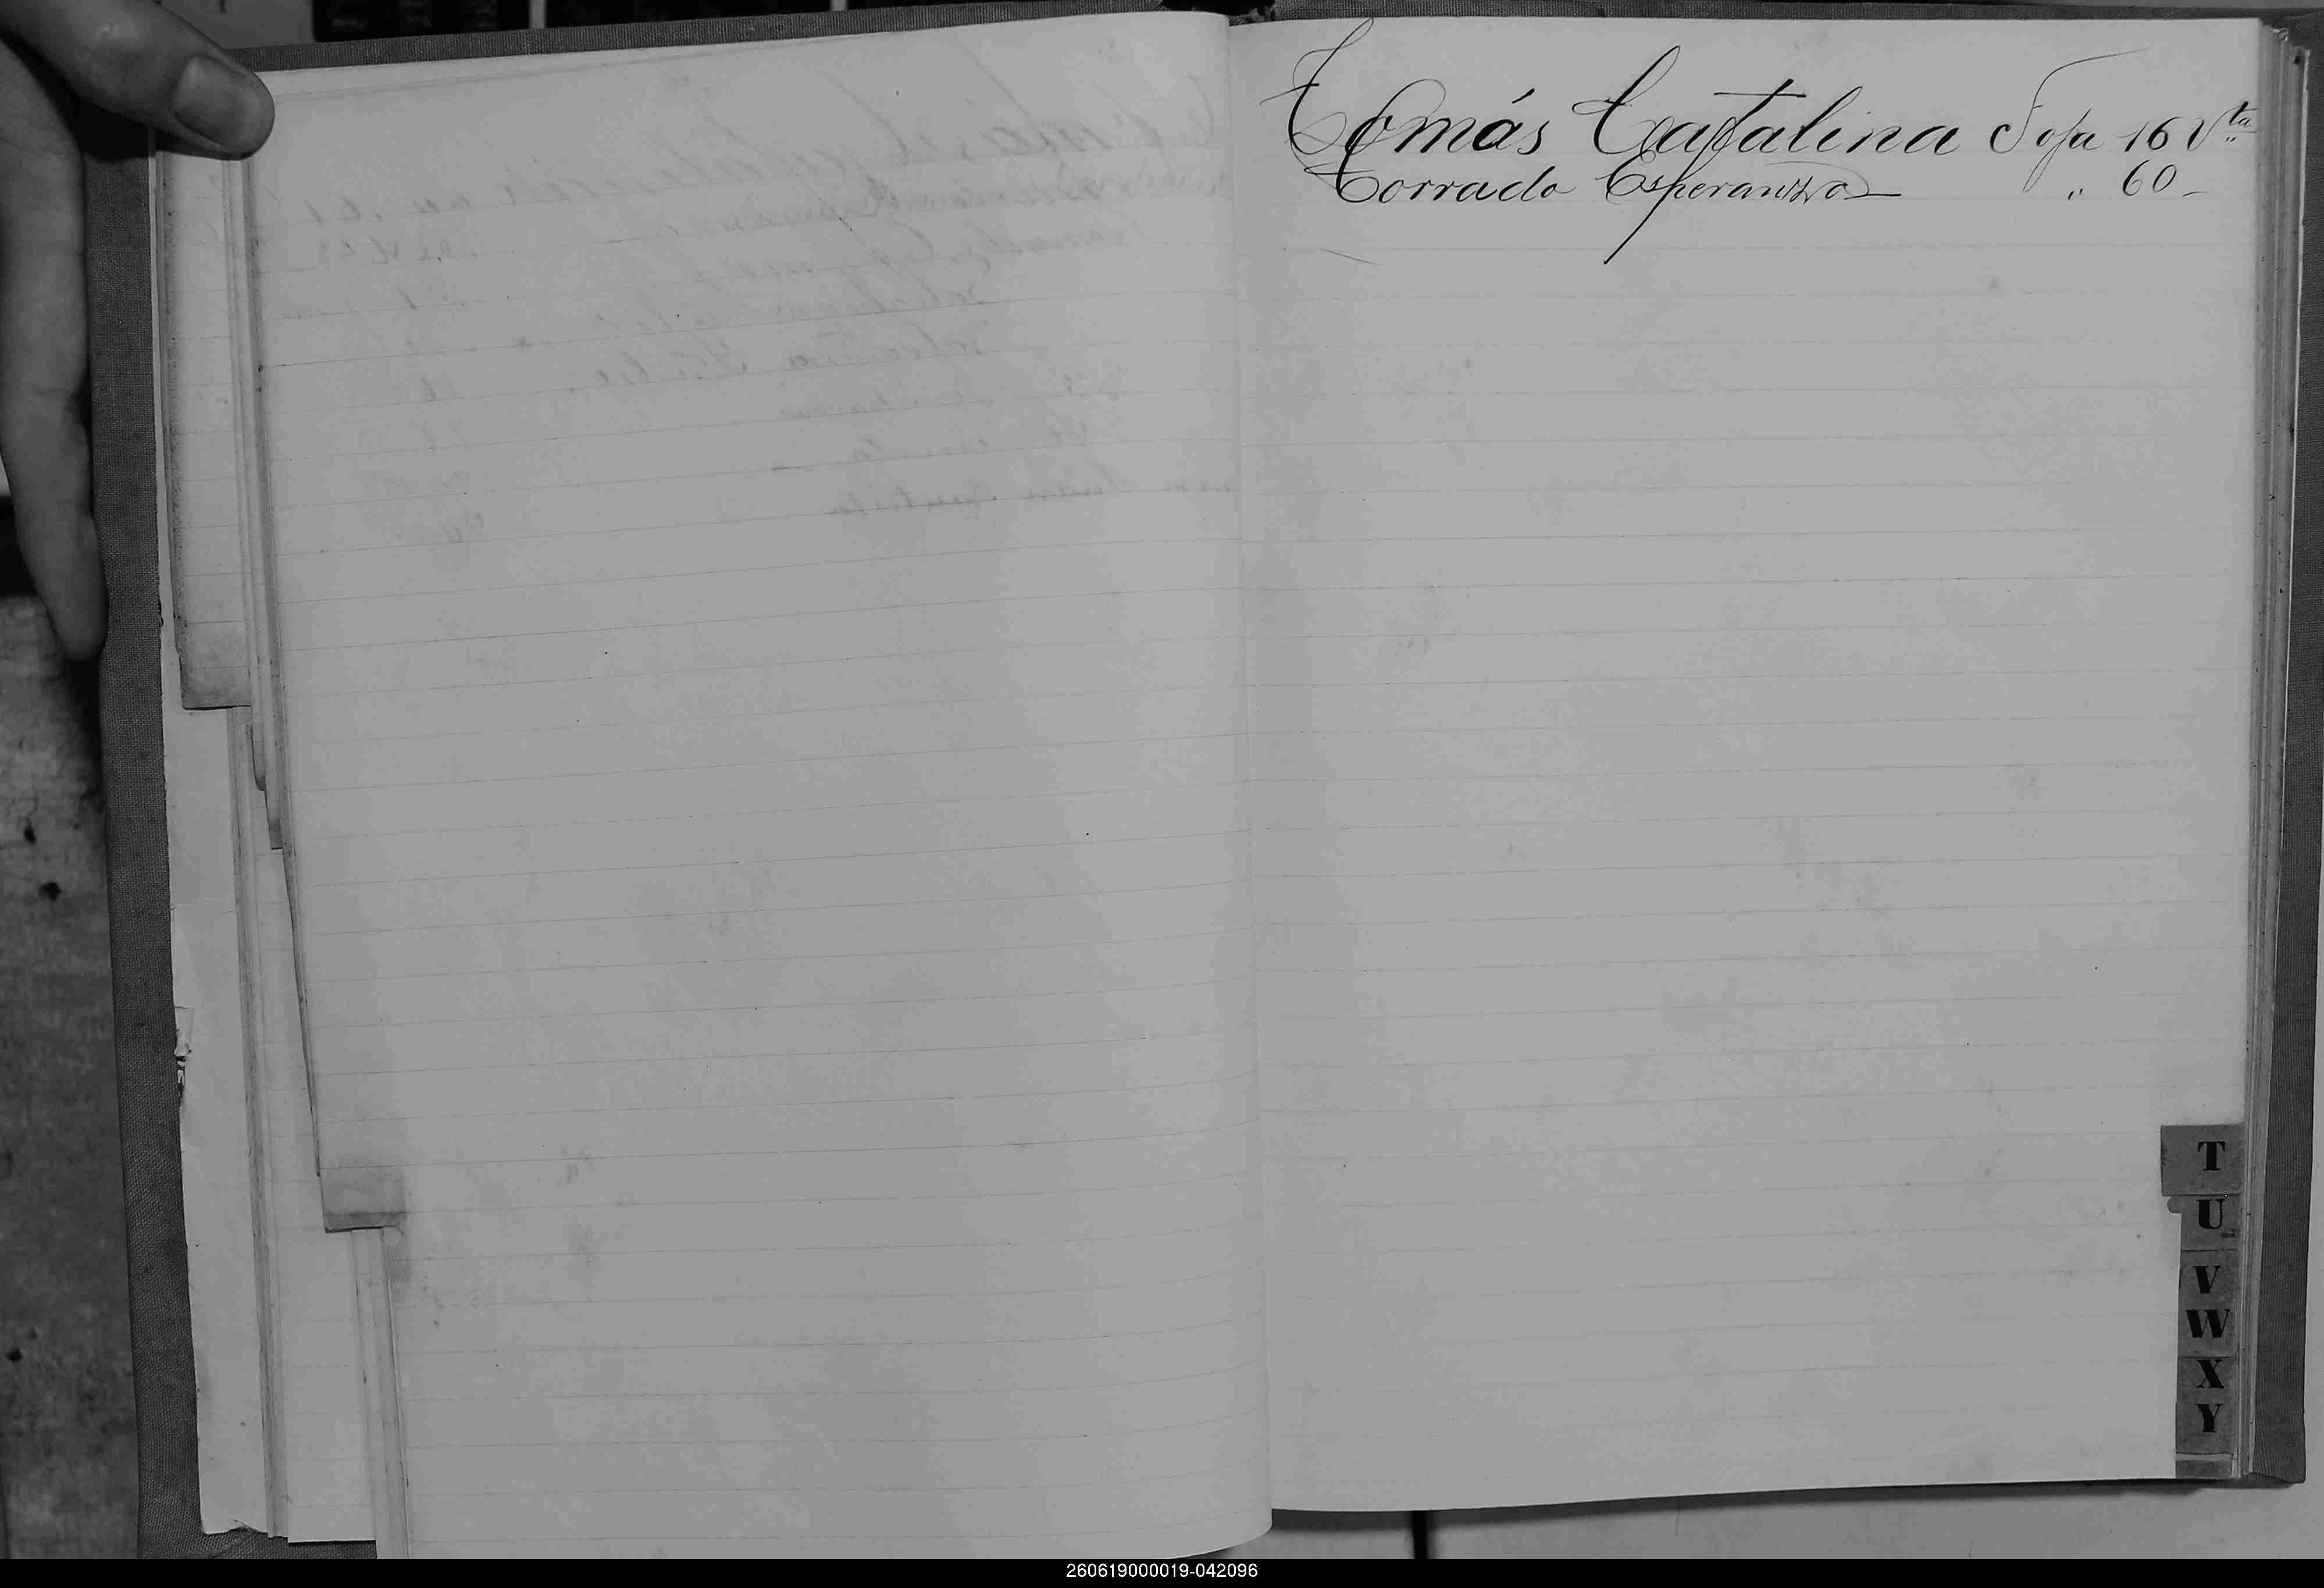 Tomás Catalina Foja 16 Vta
Torrado Esperanza " 60 -
T
U
V
W
X
Y
260619000019-042096